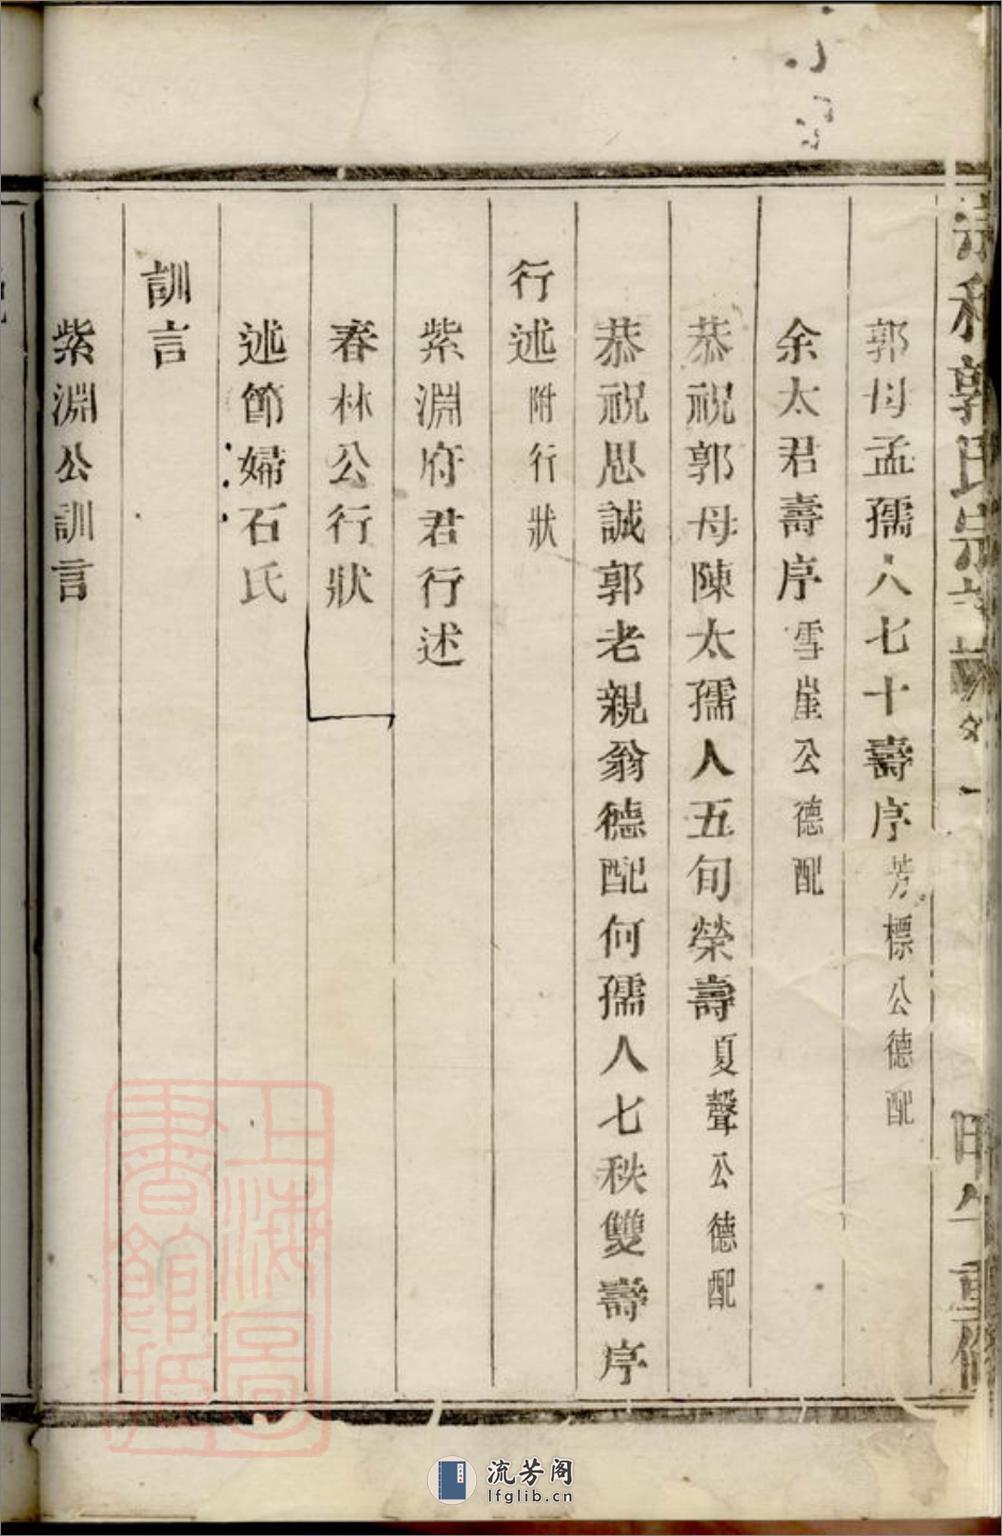 郭氏宗譜
重修
郭母孟孺人七十壽序芳標公德配
余太君壽序雪崖公德配
恭祝郭母陳太孺人五旬榮壽夏聲公德配
恭祝思誠郭老親翁德配何孺人七秩雙壽序
行述附行狀
紫淵府君行述
春林公行狀
述節婦石氏
訓言
紫淵公訓言
上海圖書館藏
流芳阁
lfglib.cn